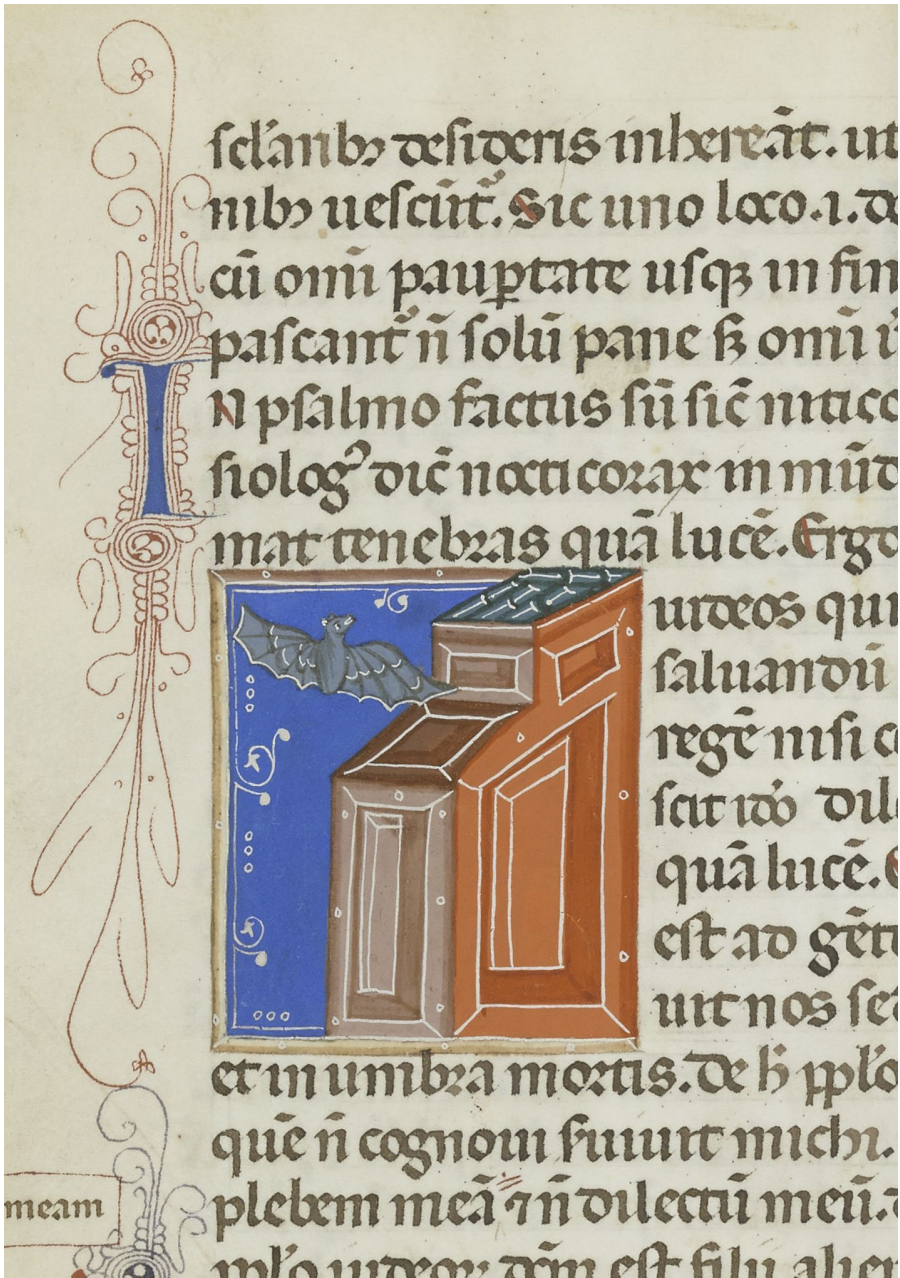 sc̄lar̄ibꝫ desideriis inhereāt. ut
nibꝫ uescūt᷑. Sic uno loco .i. de
cū om̄i paup̲tate usqꝫ in fin
pascant᷑ n̄ solū pane sꝫ om̄i ū
IN psalmo factus sū sic̄ nitico
siolog᷒ dic̄ nocticorax in mūd
mat tenebras quā lucē. Ergo
iudeos qui
saluandū
regē nisi ce
scit iđo dile
quā lucē.
est ad gēte
uit nos sed
et in umbra mortis. De h̄ ppl̄o
quē n̄ cognoui s̄uiuit michi.
plebem meā ⁊ n̄ dilectū meū. d
meam
ppl̄o iudeoꝝ dc̄m est filii alien